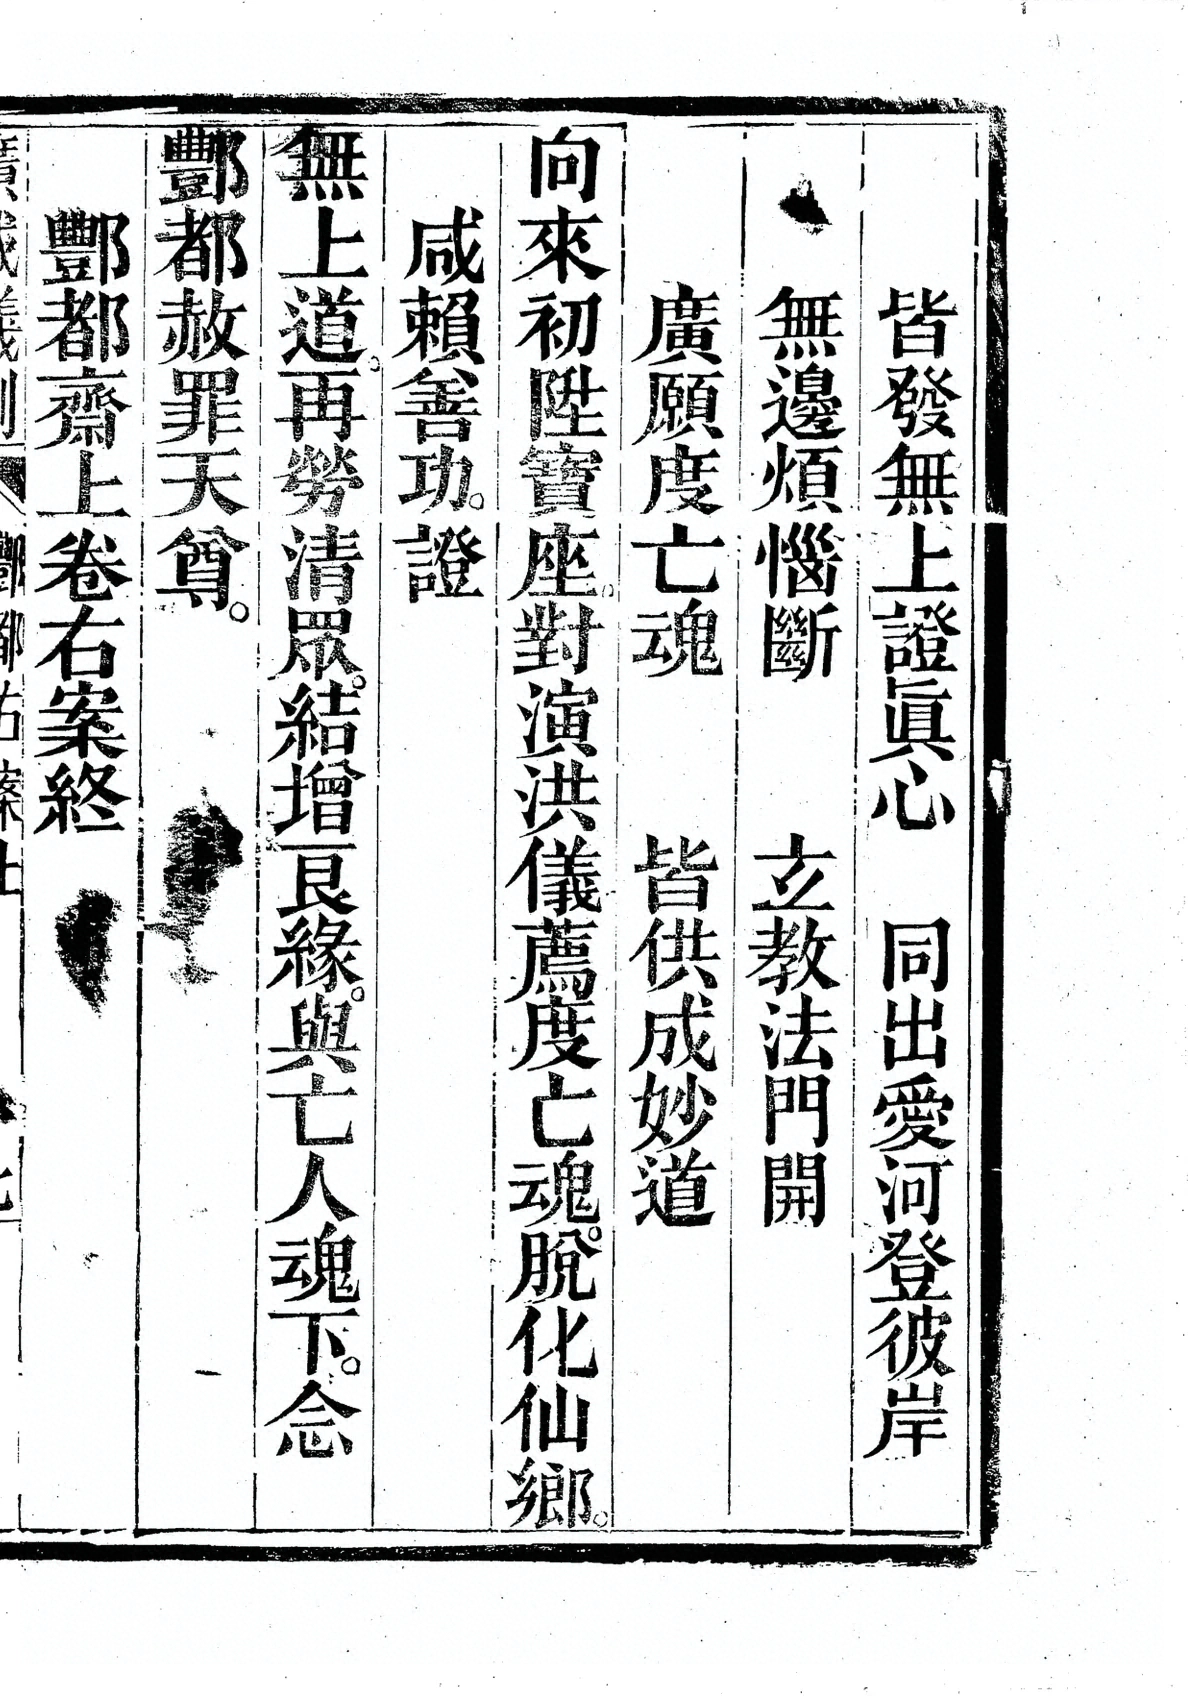 皆發無上證眞心　同出愛河登彼岸
無邊煩惱斷　玄教法門開
廣願度亡魂　皆供成妙道
向來初陞寶座。對演洪儀薦度亡魂。脫化仙鄉。
咸賴善功。證
無上道。再勞清眾。結增良緣。與亡人魂下。念
酆都赦罪天尊。
酆都齋上卷右案終